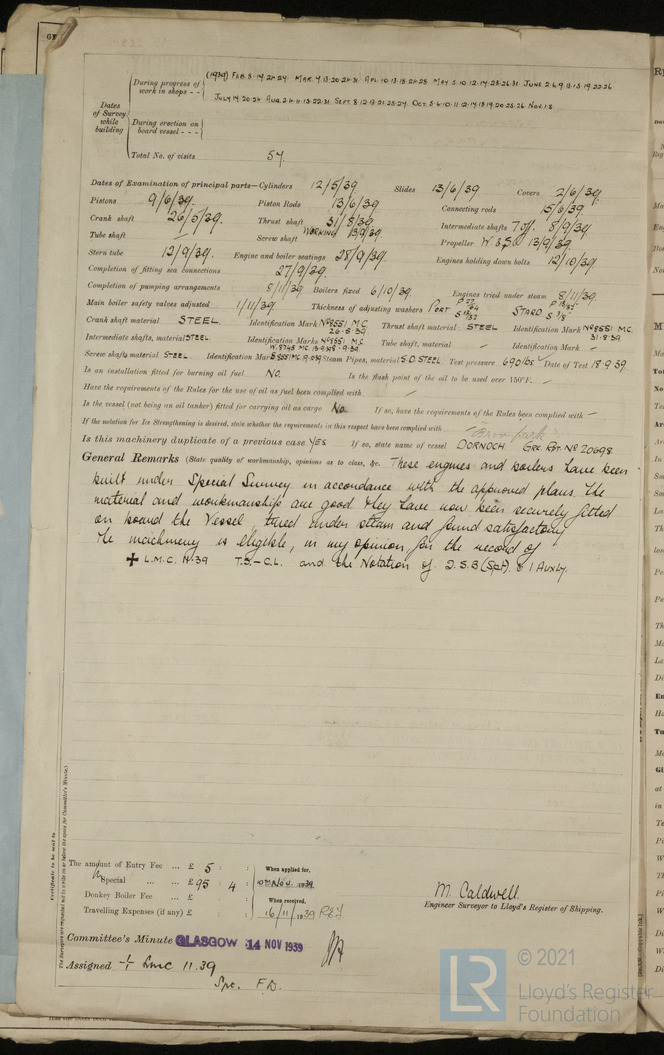 Dates of Survey while building
During progress of work in shops - -
(1939) FEB. 8. 14. 21. 24. MAR. 7. 13. 20. 24. 31. APL. 10. 13. 18. 21. 25. MAY 5. 10. 12. 14. 23. 26. 31. JUNE 2. 6. 9. 13. 15. 19. 22. 26
JULY 14. 20. 24. AUG. 2. 4. 11. 15. 22. 31. SEPT. 8. 12. 13. 21. 25. 27. OCT. 5. 6. 10. 11. 12. 14. 18. 19. 20. 23. 26. NOV. 1. 8.
During erection on board vessel - - -
Total No. of visits 54
Dates of Examination of principal parts—Cylinders 12/5/39 Slides 13/6/39 Covers 2/6/39.
Pistons 9/6/39. Piston Rods 13/6/39 Connecting rods 15/6/39
Crank shaft 26/5/39. Thrust shaft 31/8/39 Intermediate shafts 8/9/39
Tube shaft — Screw shaft WORKING 13/9/39 Propeller 13/9/39
Stern tube 12/9/39. Engine and boiler seatings 28/9/39 Engines holding down bolts 12/10/39
Completion of fitting sea connections 27/9/39.
Completion of pumping arrangements 8/11/39 Boilers fixed 6/10/39. Engines tried under steam 8/11/39.
Main boiler safety valves adjusted 1/11/39. Thickness of adjusting washers PORT STARD
Crank shaft material STEEL. Identification Mark Nº8551 M.C. 26.5.39 Thrust shaft material STEEL Identification Mark Nº8551 M.C. 31.8.39
Intermediate shafts, material STEEL. Identification Marks Nº8551 M.C. Tube shaft, material — Identification Mark —
Screw shaft, material STEEL. Identification Mark Steam Pipes, material S.D. STEEL. Test pressure 690 lbs Date of Test 18.9.39.
Is an installation fitted for burning oil fuel NO. Is the flash point of the oil to be used over 150°F. —
Have the requirements of the Rules for the use of oil as fuel been complied with —
Is the vessel (not being an oil tanker) fitted for carrying oil as cargo No. If so, have the requirements of the Rules been complied with —
If the notation for Ice Strengthening is desired, state whether the requirements in this respect have been complied with
Is this machinery duplicate of a previous case YES If so, state name of vessel DORNOCH GRK. RPT. Nº 20698
General Remarks (State quality of workmanship, opinions as to class, &c. These engines and boilers have been
built under Special Survey in accordance with the approved plans. The
material and workmanship are good they have now been securely fitted
on board the vessel, tried under steam and found satisfactory
The machinery is eligible, in my opinion, for the record of
✠ L.M.C. 11.39 T.S.-C.L. and the Notation of 2.S.B (Spt) & 1 Auxly.
Certificate to be sent to
(The Surveyors are requested not to write on or below the space for Committee's Minute.)
The amount of Entry Fee ... £ 5 : : When applied for,
Special ... £ 95 : 4 : 10th Nov. 1939
Donkey Boiler Fee ... £ : : When received,
Travelling Expenses (if any) £ : : 16/11/1939
M. Caldwell
Engineer Surveyor to Lloyd's Register of Shipping.
Committee's Minute GLASGOW 14 NOV 1939
Assigned + LMC 11.39
Spt. F.D.
© 2021
LR
Lloyd's Register
Foundation